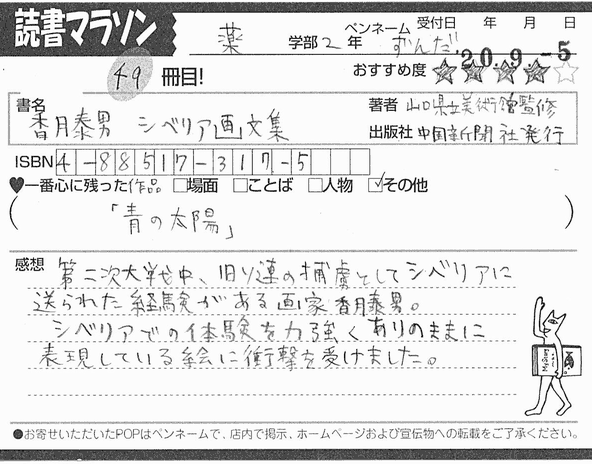 読書マラソン
薬 学部 2年 ペンネーム ずんだ 受付日 年 月 日
'20.9.-5
49 冊目! おすすめ度 ★★★★☆
書名 香月泰男 シベリア画文集
著者 山口県立美術館監修
出版社 中国新聞社発行
ISBN 4-88517-317-5
♥一番心に残った作品 □場面 □ことば □人物 ☑その他
(「青の太陽」)
感想 第二次大戦中、旧ソ連の捕虜としてシベリアに
送られた経験がある画家香月泰男。
シベリアでの体験を力強くありのままに
表現している絵に衝撃を受けました。
●お寄せいただいたPOPはペンネームで、店内で掲示、ホームページおよび宣伝物への転載をご了承ください。